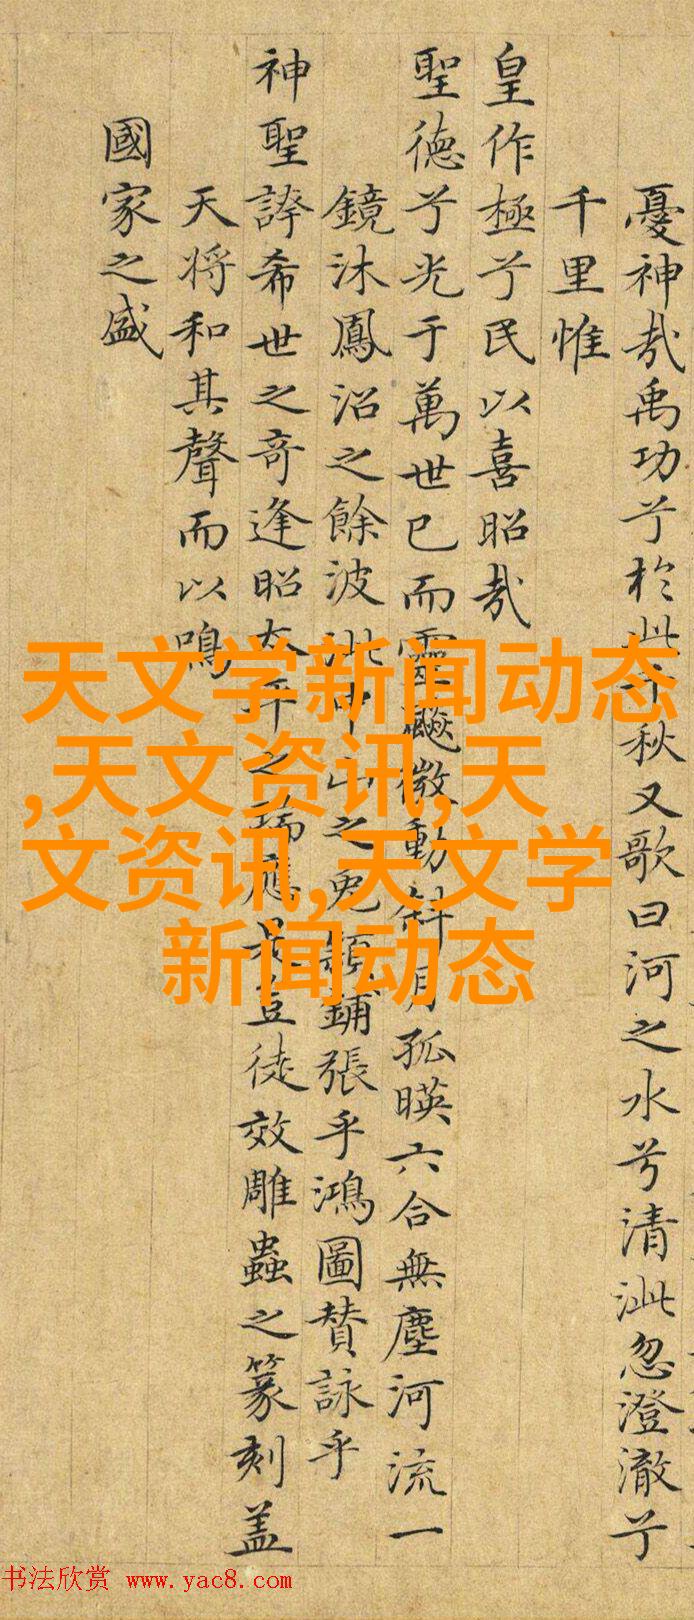 憂神哉禹功兮於此千秋又歌曰河之水兮清泚忽澄澈兮
千里惟
皇作極兮民以喜昭哉
聖德兮光于萬世已而靈飈微動斜月孤暎六合無塵河流一
鏡沐鳳沼之餘波泚中山之兔穎鋪張乎鴻圖贊詠乎
神聖誇希世之奇逢昭太平之瑞應是豈徒效雕蟲之篆刻盖
天将和其聲而以鳴
國家之盛
天文学新闻动态
,天文资讯,天
文资讯,天文学
新闻动态
书法欣赏 www.yac8.com